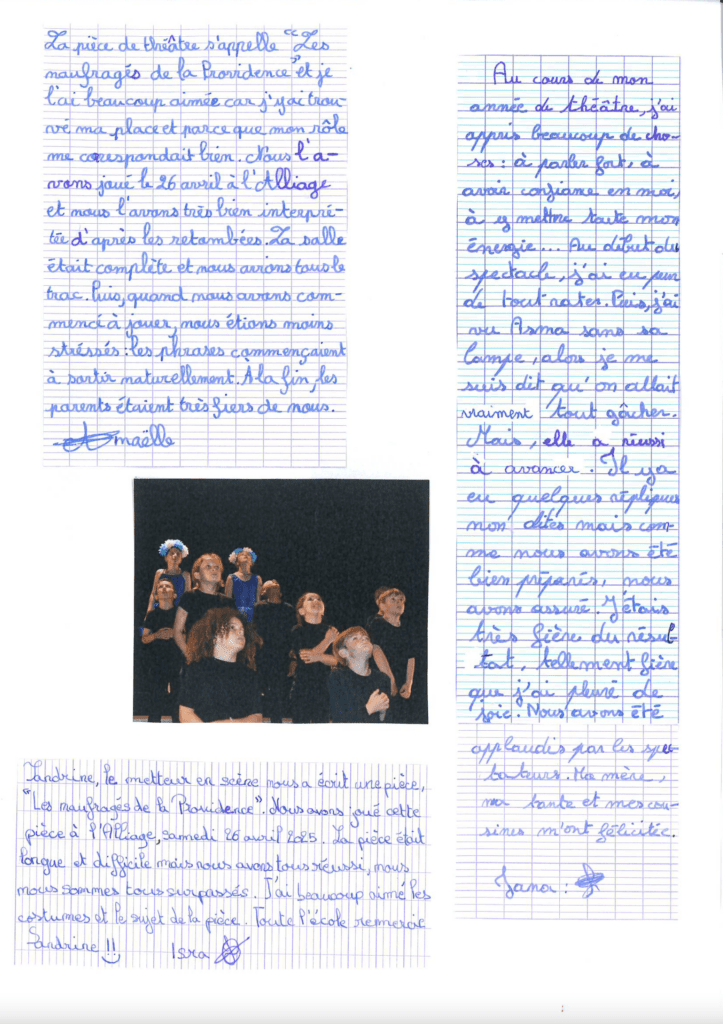 La pièce de théâtre s'appelle "Les
naufragés de la Providence" et je
l'ai beaucoup aimée car j'y ai trou-
vé ma place et parce que mon rôle
me correspondait bien. Nous l'a-
vons joué le 26 avril à l'Alliage
et nous l'avons très bien interpré-
tée d'après les retombées. La salle
était complète et nous avions tous le
trac. Puis, quand nous avons com-
mencé à jouer, nous étions moins
stréssés : les phrases commençaient
à sortir naturellement. À la fin, les
parents étaient très fiers de nous.
Amaëlle
Au cours de mon
année de théâtre, j'ai
appris beaucoup de cho-
ses : à parler fort, à
avoir confiance en moi,
à y mettre toute mon
énergie... Au début du
spectacle, j'ai eu peur
de tout rater. Puis, j'ai
vu Asma sans sa
lampe, alors je me
suis dit qu'on allait
vraiment tout gâcher.
Mais, elle a réussi
à avancer. Il y a
eu quelques répliques
non dites mais com-
me nous avons été
bien préparés, nous
avons assuré. J'étais
très fière du résul-
tat, tellement fière
que j'ai pleuré de
joie. Nous avons été
applaudis par les spec-
tateurs. Ma mère,
ma tante et mes cou-
sines m'ont félicitée.
Jana :
Sandrine, le metteur en scène nous a écrit une pièce,
"Les naufragés de la Providence". Nous avons joué cette
pièce à l'Alliage, samedi 26 avril 2025. La pièce était
longue et difficile mais nous avons tous réussi, nous
nous sommes tous surpassés. J'ai beaucoup aimé les
costumes et le sujet de la pièce. Toute l'école remercie
Sandrine !!
Isra